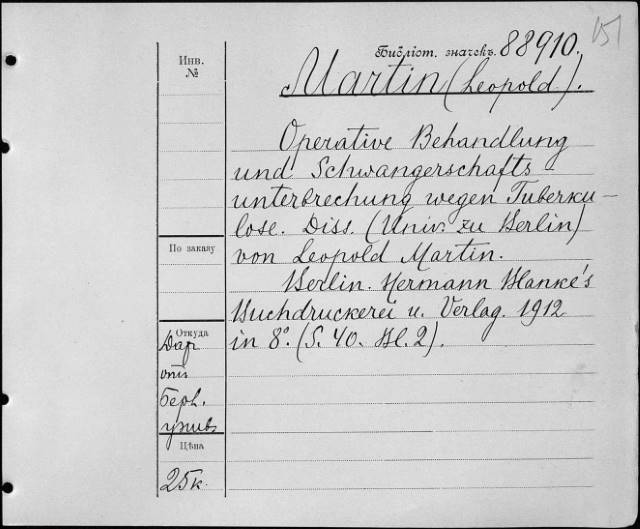 151
Библіот. значекъ 88910.
Инв.
№
Martin (Leopold).
Operative Behandlung
und Schwangerschafts-
unterbrechung wegen Tuberku-
lose. Diss. (Univ. zu Berlin)
von Leopold Martin.
Berlin. Hermann Blanke's
Buchdruckerei u. Verlag. 1912
in 8°. (S. 40. Bl. 2).
По заказу
Откуда
Дар
отъ
Берл.
унив.
Цѣна
25к.